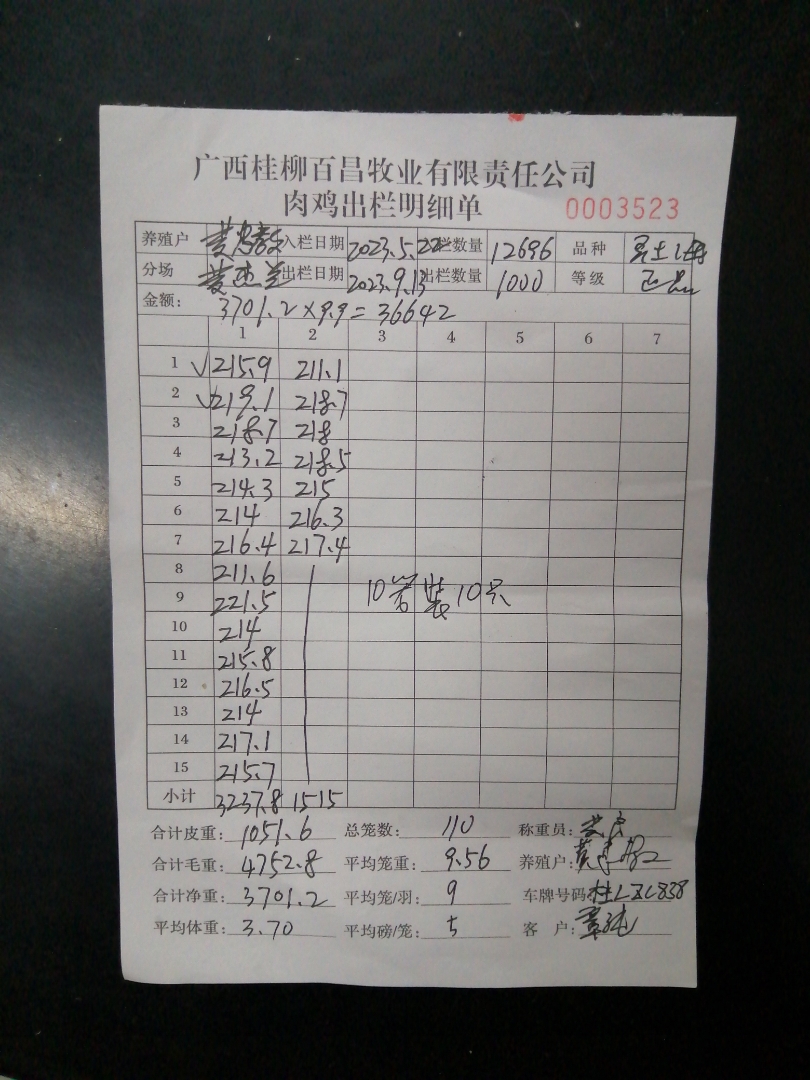 广西桂柳百昌牧业有限责任公司
肉鸡出栏明细单 0003523
养殖户 入栏日期 2023.5.22 入栏数量 12696 品种
分场 出栏日期 2023.9.13 出栏数量 1000 等级
金额: 3701.2×9.9=36642
1 2 3 4 5 6 7
1 √ 215.9 211.1
2 √ 219.1 218.7
3 218.7 218
4 213.2 218.5
5 214.3 215
6 214 216.3
7 216.4 217.4
8 211.6
9 221.5 10 装10只
10 214
11 215.8
12 216.5
13 214
14 217.1
15 215.7
小计 3237.8 1515
合计皮重: 1051.6 总笼数: 110 称重员:
合计毛重: 4752.8 平均笼重: 9.56 养殖户: 黄
合计净重: 3701.2 平均笼/羽: 9 车牌号码: 桂LZL838
平均体重: 3.70 平均磅/笼: 5 客户: